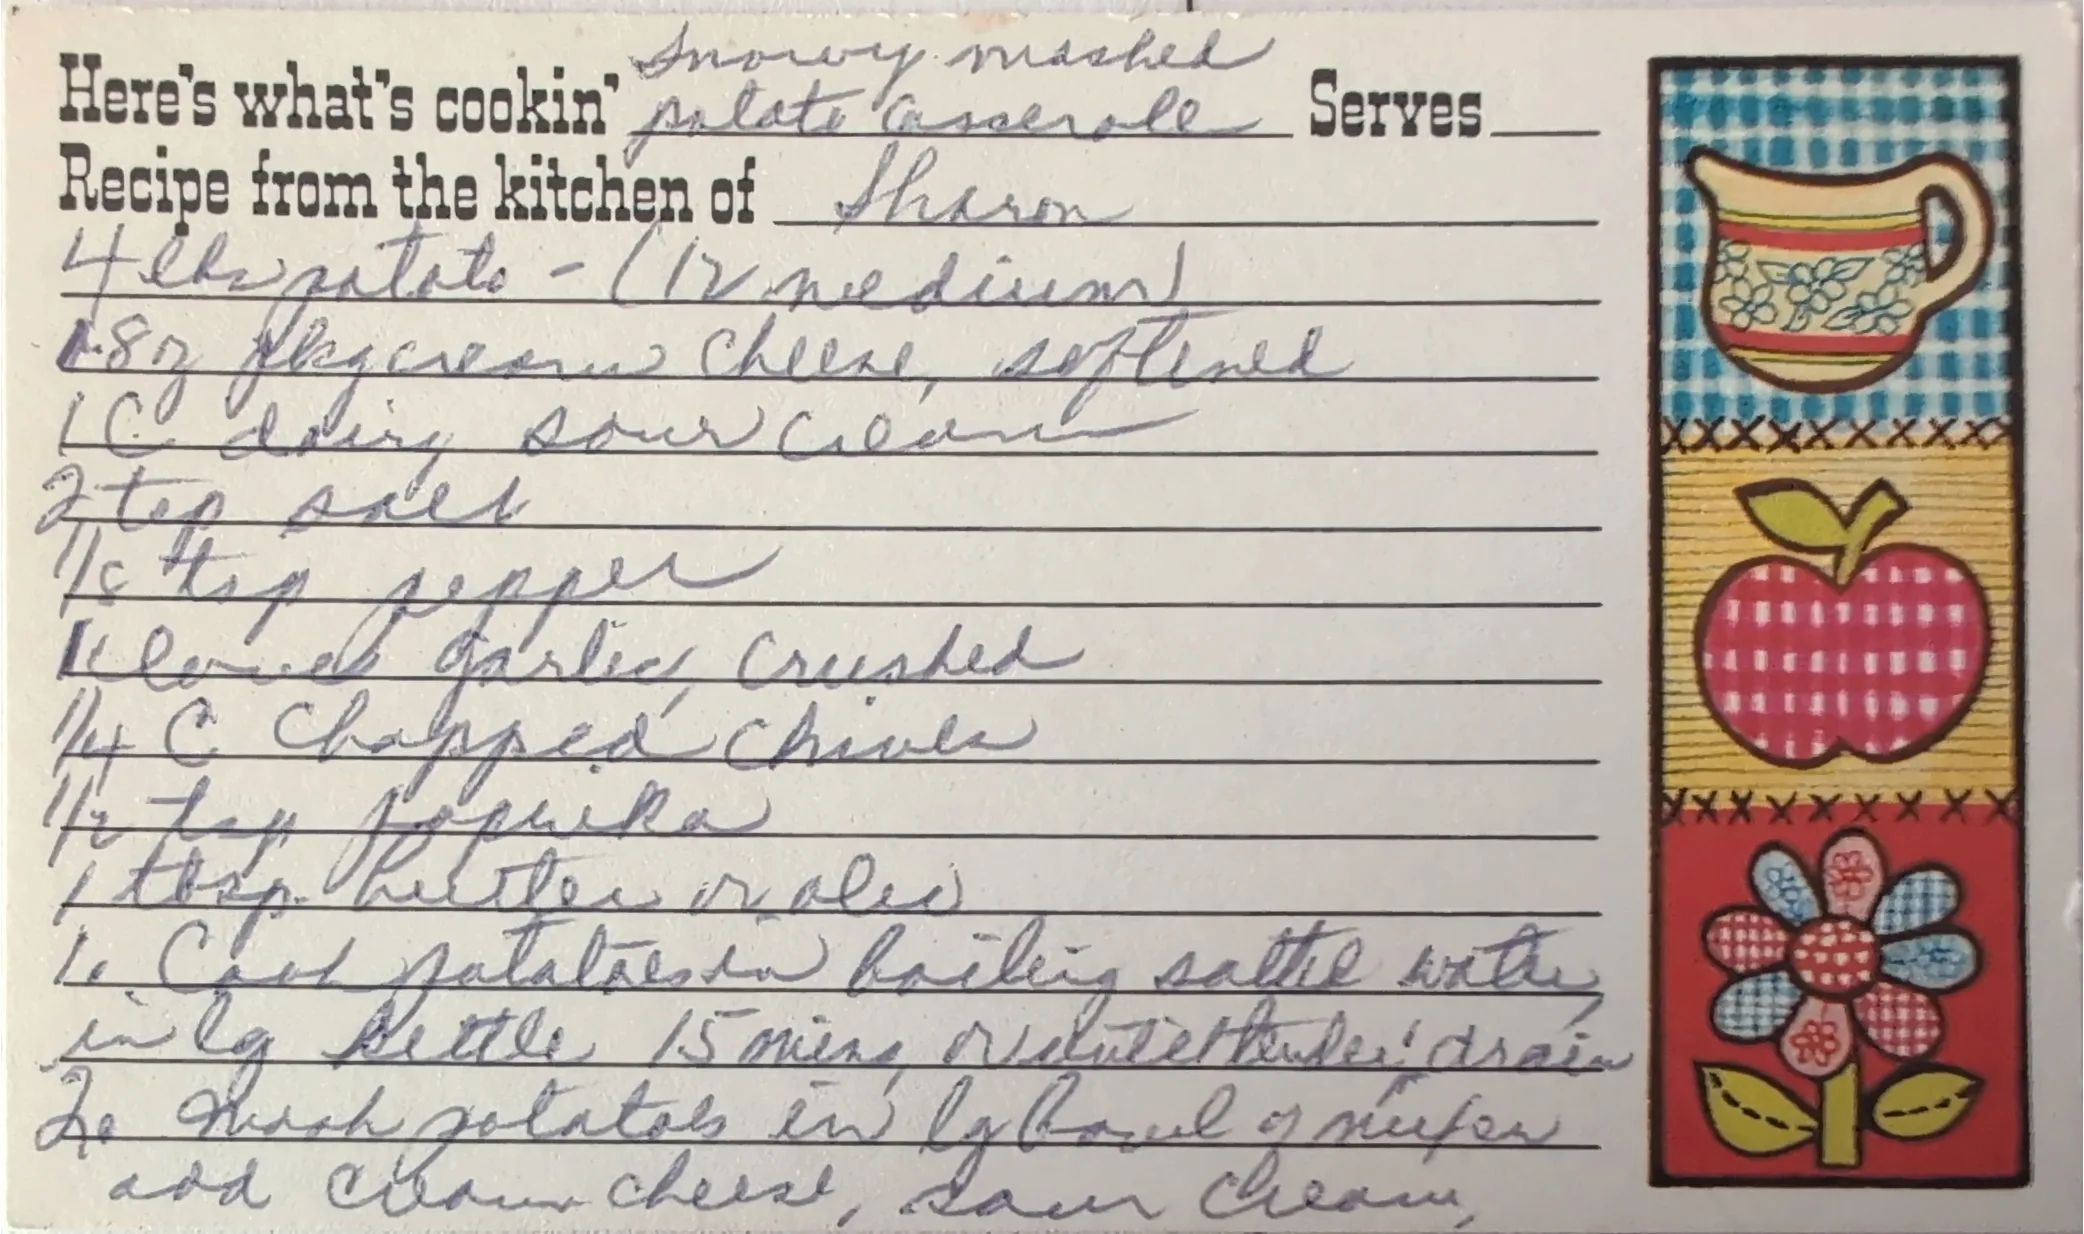 Snowy mashed
Here's what's cookin' potato casserole Serves
Recipe from the kitchen of Sharon
4 lbs potato - (12 medium)
1-8 oz pkg cream cheese, softened
1 C dairy sour cream
2 tsp salt
1/8 tsp pepper
1 clove garlic, crushed
1/4 C chopped chives
1/2 tsp paprika
1 tbsp. butter or oleo
1. Cook potatoes in boiling salted water,
in lg kettle 15 mins, or until tender; drain
2. Mash potatoes in lg bowl of mixer
add cream cheese, sour cream,